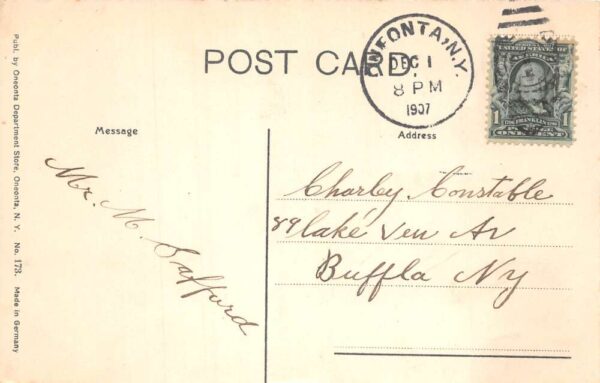 POST CARD.
ONEONTA, N.Y.
DEC 1
8 PM
1907
UNITED STATES OF AMERICA
1 1
FRANKLIN
ONE CENT
Message
Address
Mr. M. Safford
Charley Constable
89 laké Veu Av
Buffla Ny
Publ. by Oneonta Department Store, Oneonta, N. Y. No. 173. Made in Germany